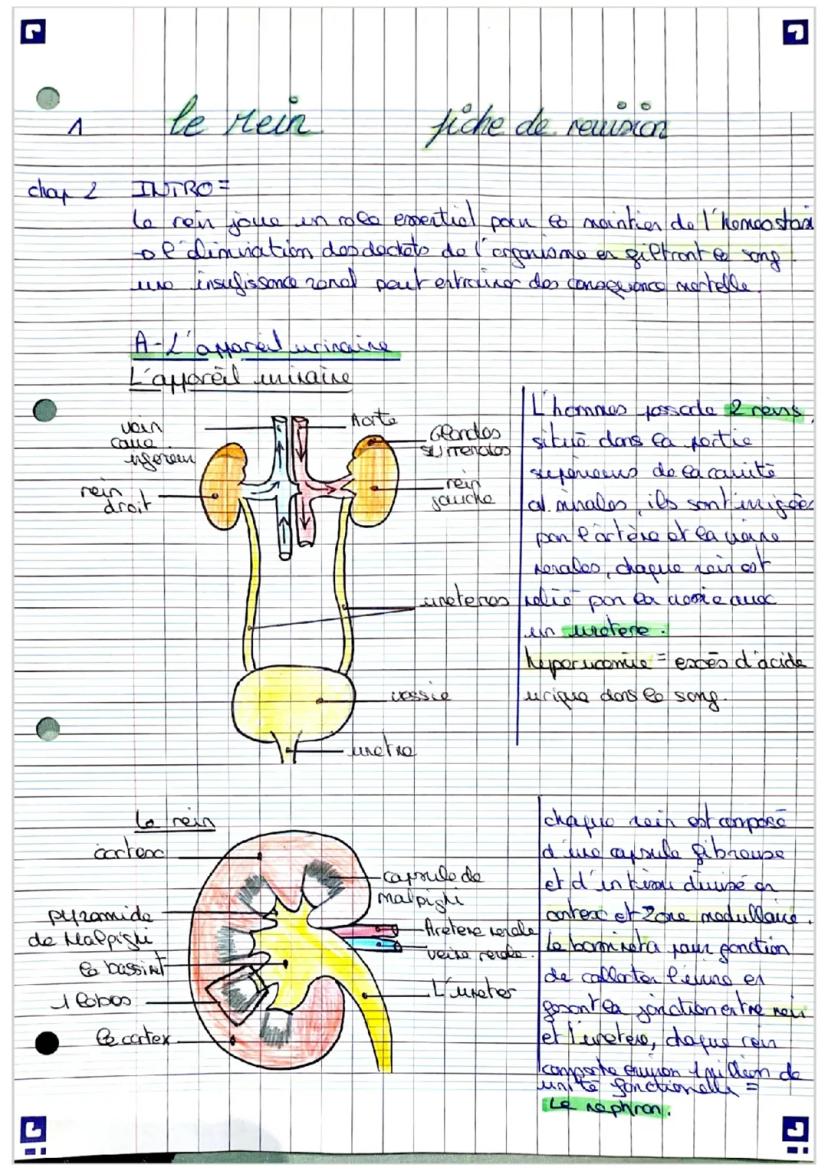 1 le rein fiche de revision
chap 2 INTRO =
Le rein joue un role essentiel pour le maintien de l'homeostasi
→ l'élimination des dechets de l'organisme en filtrant le song.
une insufissance renal peut entrainer des consequence mortelle.
A-L'appareil urinaire
L'appareil urinaire
vein
cave
inferieur
Aorte
Glandes
surrenales
rein
droit
rein
gauche
ureteres
vessie
uretre
L'hommes possede 2 reins,
situé dans la partie
superieurs de la cavité
, ils sont irrigées
par l'artère et la veine
renales, chaque rein est
relié par la
un uretere.
hyperuremie = excès d'acide
urique dans le song.
Le rein
cortex
capsule de
malpighi
pyramide
de Malpighi
Artere renale
veine renale.
le bassinet
1 lobes
L'ureter
le cortex
chaque rein est composé
d'une capsule fibreuse
et d'un tissu divisé en
cortex et zone medullaire.
Le a pour fonction
de collecter l'urine en
fesant la jonction entre rein
et l'uretere, chaque rein
comporte environ 1 million de
unité fonctionelle =
Le nephron.